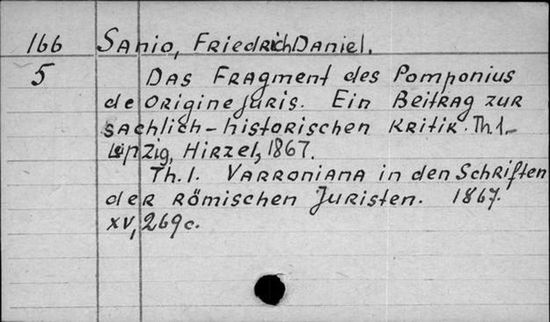 166 Sanio, Friedrich Daniel.
5 Das Fragment des Pomponius
de origine juris. Ein Beitrag zur
sachlich-historischen Kritik. Th.1-
Leipzig, Hirzel, 1867.
Th.1. Varroniana in den Schriften
der römischen Juristen. 1867.
XV, 269 c.